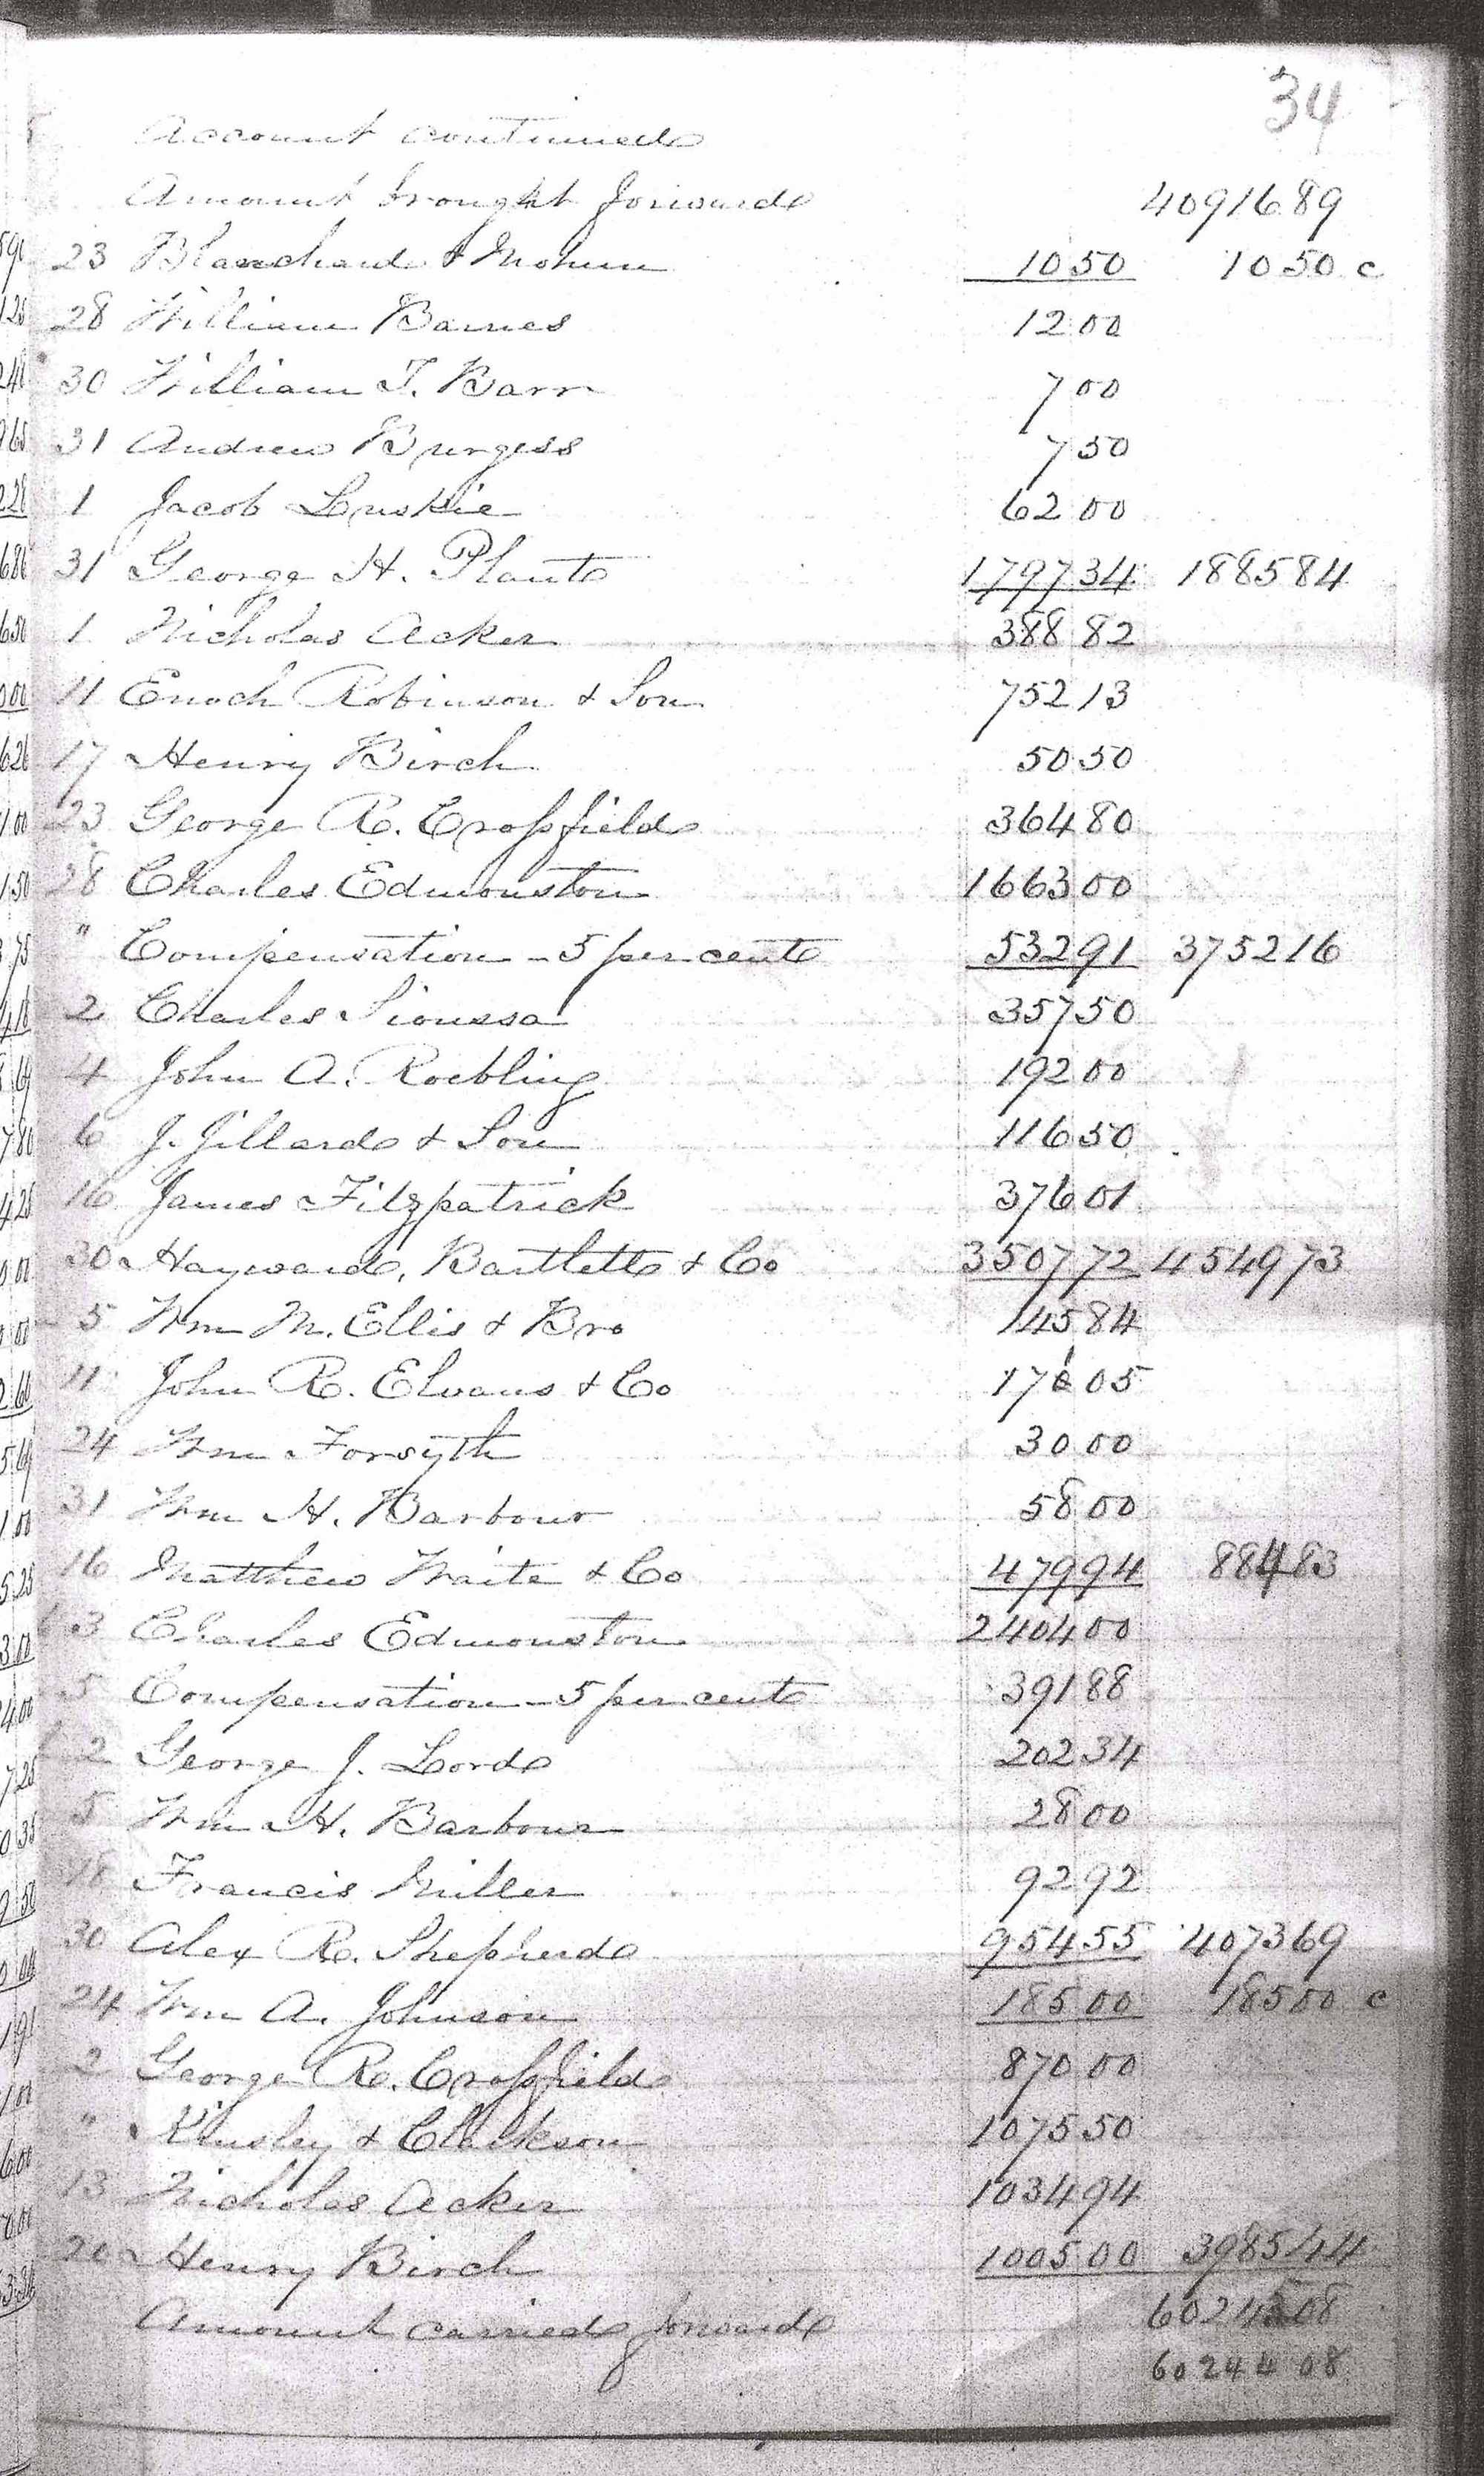 34
Account continued
Amount brought forward 40916 89
23 Blanchard & Mohun 10 50 10 50 c
28 William Barnes 12 00
30 William T. Barr 7 00
31 Andrew Burgess 7 50
1 Jacob Luskie 62 00
31 George H. Plant 1797 34 1885 84
1 Nicholas Acker 388 82
11 Enoch Robinson & Son 752 13
17 Henry Birch 50 50
23 George R. Crossfield 364 80
28 Charles Edmonston 1663 00
" Compensation - 5 per cent 532 91 3752 16
2 Charles Sioussa 357 50
4 John A. Roebling 192 00
6 J. Jillard & Son 116 50
16 James Fitzpatrick 376 01
30 Hayward, Bartlett & Co 3507 72 4549 73
5 Wm M. Ellis & Bro 145 84
11 John R. Elvans & Co 171 05
24 Wm Forsyth 30 00
31 Wm H. Barbour 58 00
16 Matthew Waite & Co 479 94 884 83
3 Charles Edmonston 2404 00
5 Compensation - 5 per cent 391 88
2 George J. Lord 202 34
5 Wm H. Barbour 28 00
18 Francis Miller 92 92
30 Alex R. Shepherd 954 55 4073 69
24 Wm A. Johnson 185 00 185 00 c
2 George R. Crossfield 870 00
" Kinsley & Clarkson 1075 50
13 Nicholas Acker 1034 94
20 Henry Birch 1005 00 3985 44
Amount carried forward 60245 08
60244 08